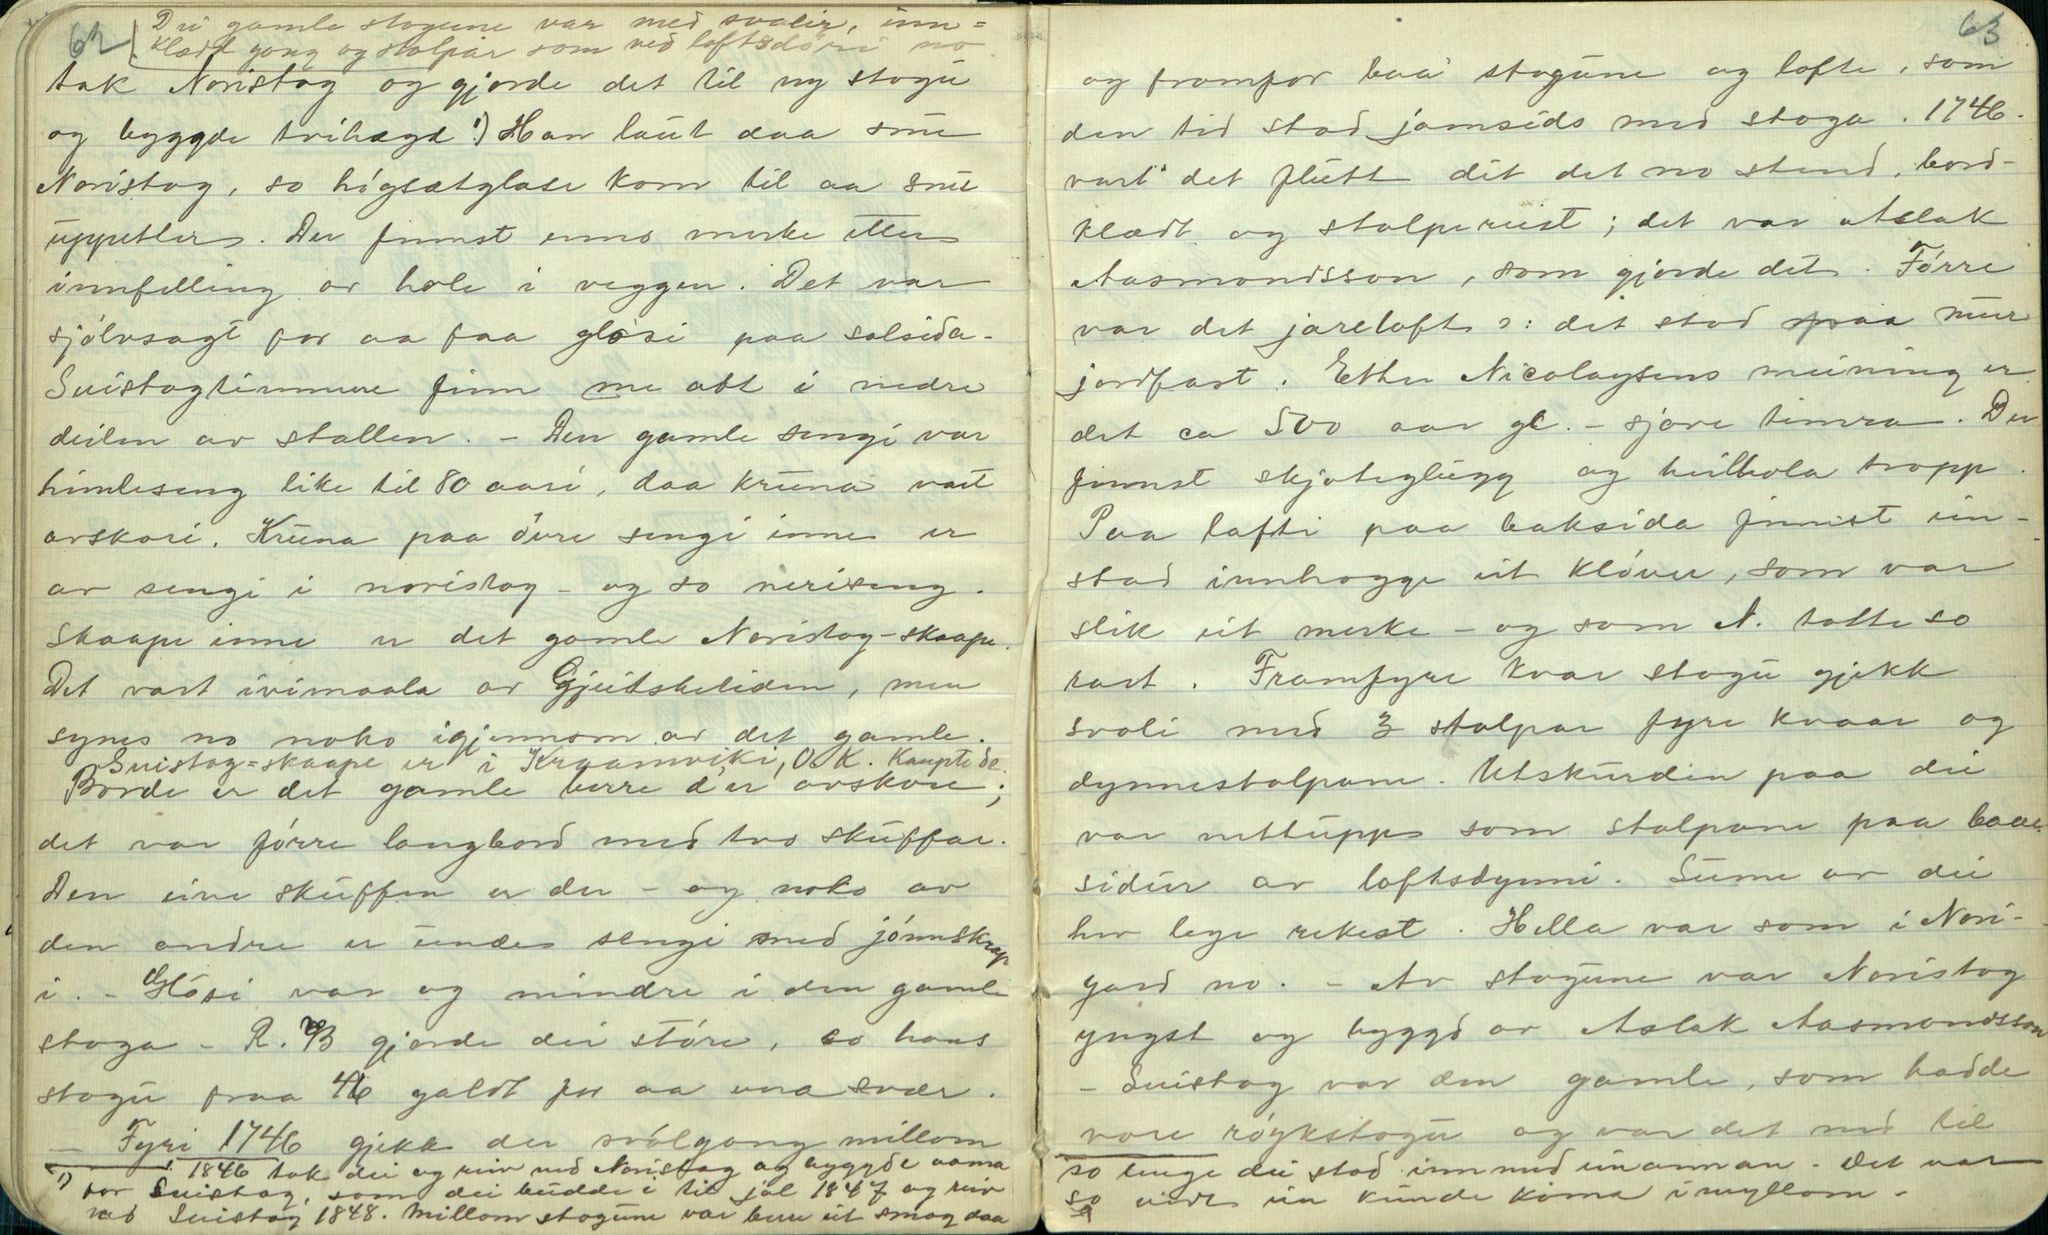 62
Dei gamle stogune var med svalir, inn=
klædt gong og stolpar som ved loftsdøri no
tok Noristog og gjorde det til ny stogu
og byggde tvihøgd ¹) Han laut daa snu
Noristog, so högsætglase kom til aa snu
uppetter. Der finnst enno merke etter
innfelling av hole i veggen. Det var
sjølvsagt for aa faa glósi paa solsida.
Suistogtimmere finn me att i nedre
deilen av stallen. – Den gamle sengi var
himleseng like til 80 aari, daa kruna vart
avskori. Kruna paa øvre sengi inne er
av sengi i noristog – og so neriseng.
Skaape inne er det gamle Noristog-skaape.
Det vart ivimaala av Gjeitskeliden, men
synes no noko igjennom av det gamle.
Suistog=skaape er i Kraamviki, O. K. kaupte de.
Borde er det gamle berre d'er avskore;
det var fórre langbord med tvo skuffar.
Den eine skuffen er der – og noko av
den andre er under sengi med jónnskrap
i. – Glósi var og mindre i den gamle
stoga – R. B gjorde dei større, so hans
stogu fraa 46 galdt for aa vera svær.
– Fyri 1746 gjekk der svólgong millom
¹) i 1846 tok dei og reiv ned Noristog og byggde aama
for Suistog, som dei budde i til jol 1847 og reiv
ned Suistog 1848. Millom stogune var berre eit smog daa
63
og framfor baa stogune og lofte, som
den tid stod jamsids med stoga. 1746.
vart det flutt dit det no stend, bord-
klædt og stolpereist; det var Aslak
Aasmondsson, som gjorde det. Fórre
var det jareloft ɔ: det stod paa mur
jordfast. Etter Nicolaysens meining er
det ca 500 aar gl. – sjøve timra. Der
finnst skjoteglugg og heilhola tropp.
Paa lofti paa baksida finnst ein-
stad innhogge eit kløver, som var
slik eit merke – og som N. totte so
rart. Framfyre kvar stogu gjekk
svoli med 3 stolpar fyre kvaar og
dynnestolpane. Utskurdin paa dei
var nettupp som stolpane paa baae
sidur av loftsdynni. Sume av dei
hev lege rekest. Hella var som i Nori-
gard no. – Av stogune var Noristog
yngst og byggd av Aslak Aasmondsson
– Suistog var den gamle, som hadde
vore róykstogu og var det med til
so lenge dei stod inn med einannan. Det var
so vidt ein kunde koma imyllom –